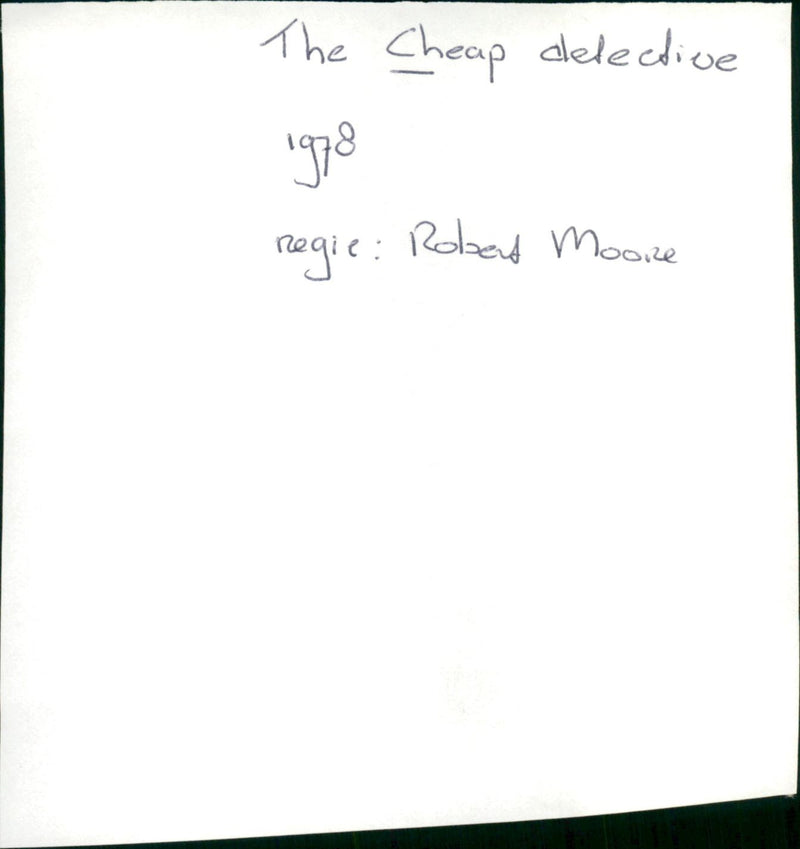 The Cheap detective
1978
regie: Robert Moore